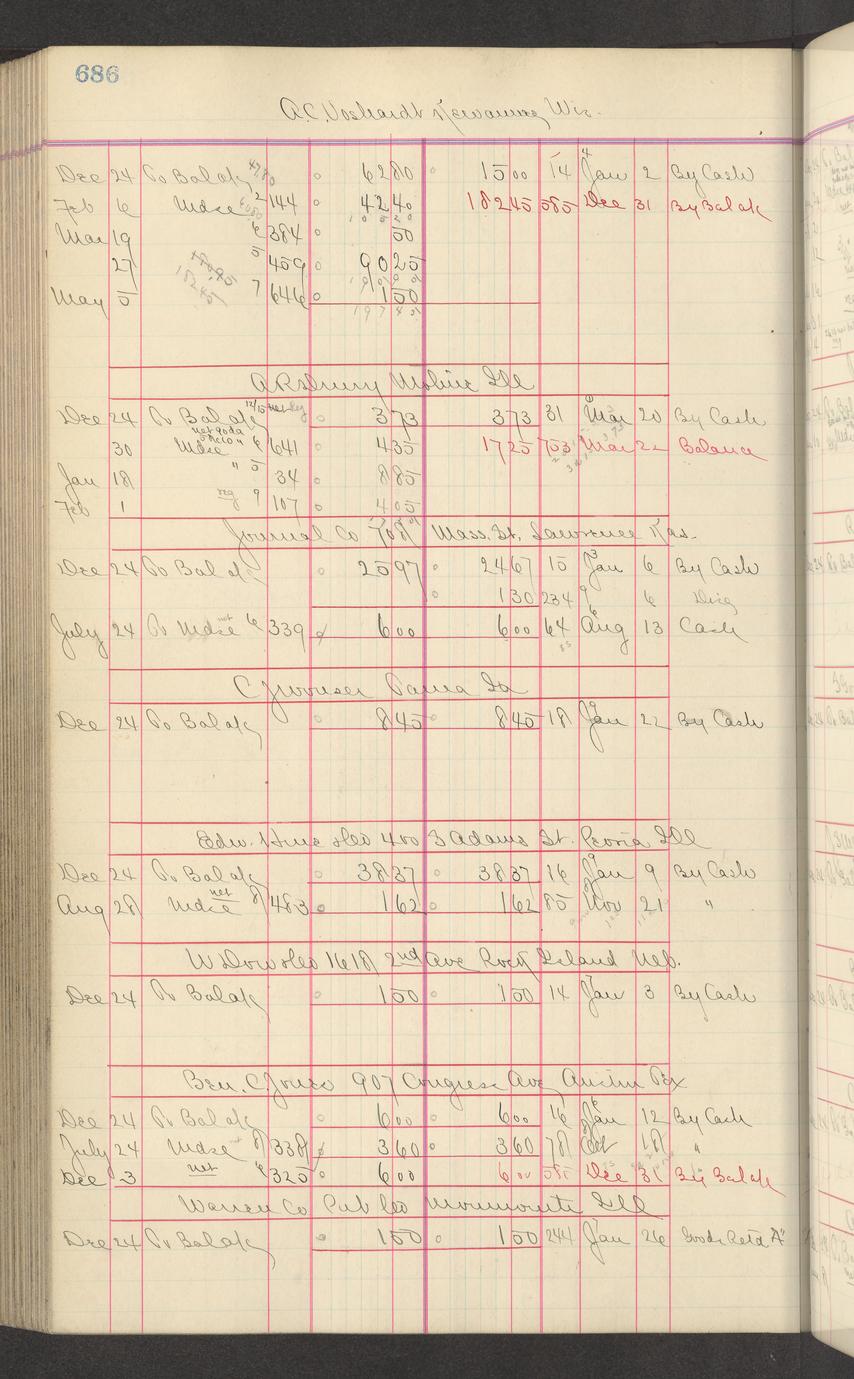 686
A.C. Voshardt Kewaunee Wis.
Dec 24 To Bal 4780 62 80 15 00 14 Jan 2 By Cash
Feb 6 Mdse 2 144 42 40 182 45 585 Dec 31 By Bal
Mar 19 6 384 50
27 5 459 90 25
May 5 7 646 1 50
197 45
Moline Ill
Dec 24 To Bal 3 73 3 73 31 Mar 20 By Cash
30 Mdse 6 641 4 35 17 25 753 Mar 22 Balance
Jan 18 " 5 34 8 85
Feb 1 9 107 4 05
Journal Co 708 Mass. St. Lawrence Kas.
Dec 24 To Bal 25 97 24 67 15 Jan 6 By Cash
1 30 234 9 6
July 24 To Mdse net 6 339 6 00 6 00 64 Aug 13 Cash
Ia
Dec 24 To Bal 8 45 8 45 18 Jan 22 By Cash
Edw. Hine & Co 400 S Adams St. Peoria Ill
Dec 24 To Bal 38 37 38 37 16 Jan 9 By Cash
Aug 28 Mdse net 8 483 1 62 1 62 85 Nov 21 "
1618 2nd Ave Rock Island Neb.
Dec 24 To Bal 1 50 1 50 14 Jan 3 By Cash
Ben. C. Jones 907 Congress Ave Austin Tex
Dec 24 To Bal 6 00 6 00 16 Jan 12 By Cash
July 24 Mdse 8 338 3 60 3 60 78 Oct 18 "
Dec 3 net 6 325 6 00 6 00 585 Dec 31 By Bal
Warren Co Pub Co Monmouth Ill
Dec 24 To Bal 1 50 1 50 244 Jan 26 Goods Retd